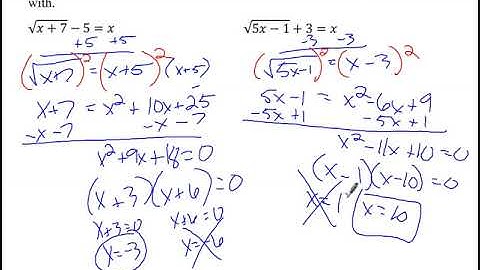 with.
√x + 7 − 5 = x
+5 +5
(√x+7)² = (x+5)² (x+5)
x+7 = x²+10x+25
−x −7 −x −7
x²+9x+18=0
(x+3)(x+6)=0
x+3=0 x+6=0
x=-3 x=-6
√5x − 1 + 3 = x
-3 -3
(√5x-1)² = (x-3)²
5x-1 = x²-6x+9
-5x+1 -5x+1
x²-11x+10=0
(x-1)(x-10)=0
x=1 x=10